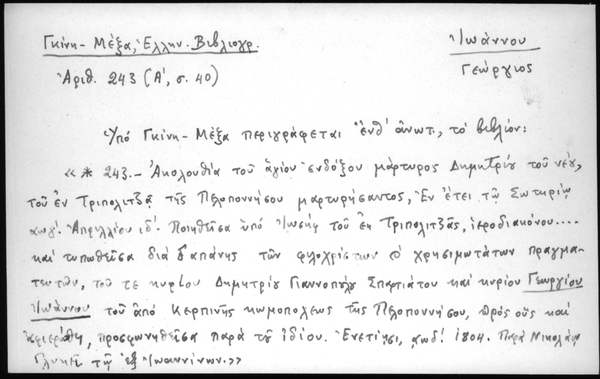 Γκίνη - Μέξα, Ἑλλην. Βιβλιογρ.
Ἰωάννου
Γεώργιος
Ἀριθ. 243 (Α', σ. 40)
Ὑπό Γκίνη - Μέξα περιγράφεται ἐνθ' ἄνωτ., τό βιβλίον:
«* 243.- Ἀκολουθία τοῦ ἁγίου ἐνδόξου μάρτυρος Δημητρίου τοῦ νέου,
τοῦ ἐν Τριπολιτζᾷ τῆς Πελοποννήσου μαρτυρήσαντος, Ἐν ἔτει τῷ Σωτηρίῳ
αωγ'. Ἀπριλλίου ιδ'. Ποιηθεῖσα ὑπό Ἰωσήφ τοῦ ἐκ Τριπολιτζᾶς, ἱεροδιακόνου....
καί τυπωθεῖσα διά δαπάνης τῶν φιλοχρίστων & χρησιμωτάτων πραγμα-
τευτῶν, τοῦ τε κυρίου Δημητρίου Γιαννοπούλου Σπαρτιάτου καί κυρίου Γεωργίου
Ἰωάννου τοῦ ἀπό Κερπινῆς κωμοπόλεως τῆς Πελοποννήσου, πρός οὕς καί
ἀφιερώθη, προσφωνηθεῖσα παρά τοῦ ἰδίου. Ἐνετίησι, αωδ'. 1804. Παρά Νικολάῳ
Γλυκεῖ τῷ ἐξ Ἰωαννίνων.»